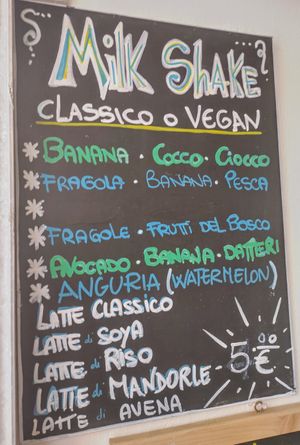 Milk Shake
CLASSICO O VEGAN
* BANANA · COCCO · CIOCCO
* FRAGOLA · BANANA · PESCA
*
* FRAGOLE · FRUTTI DEL BOSCO
* AVOCADO · BANANA · DATTERI
* ANGURIA (WATERMELON)
LATTE CLASSICO
LATTE di SOYA
LATTE di RISO
LATTE di MANDORLE
LATTE di AVENA
5,00 €